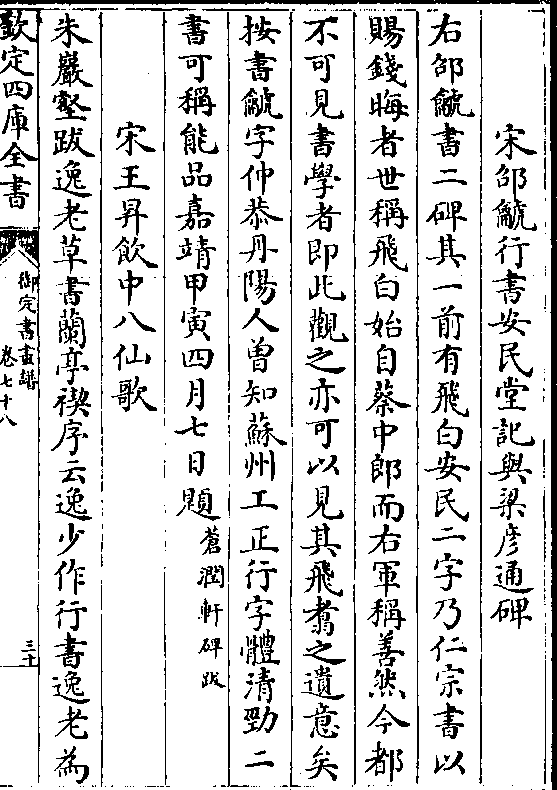 宋邵䶵行書安民堂記與梁彦通碑
右邵䶵書二碑其一前有飛白安民二字乃仁宗書以
賜錢晦者世稱飛白始自蔡中郎而右軍稱善然今都
不可見書學者即此觀之亦可以見其飛翥之遺意矣
按書䶵字仲恭丹陽人曾知蘇州工正行字體清勁二
書可稱能品嘉靖甲寅四月七日題蒼潤軒碑跋
宋王昇飲中八仙歌
朱巖壑跋逸老草書蘭亭禊序云逸少作行書逸老為
欽定四庫全書
御定書畫譜
卷七十八
三十